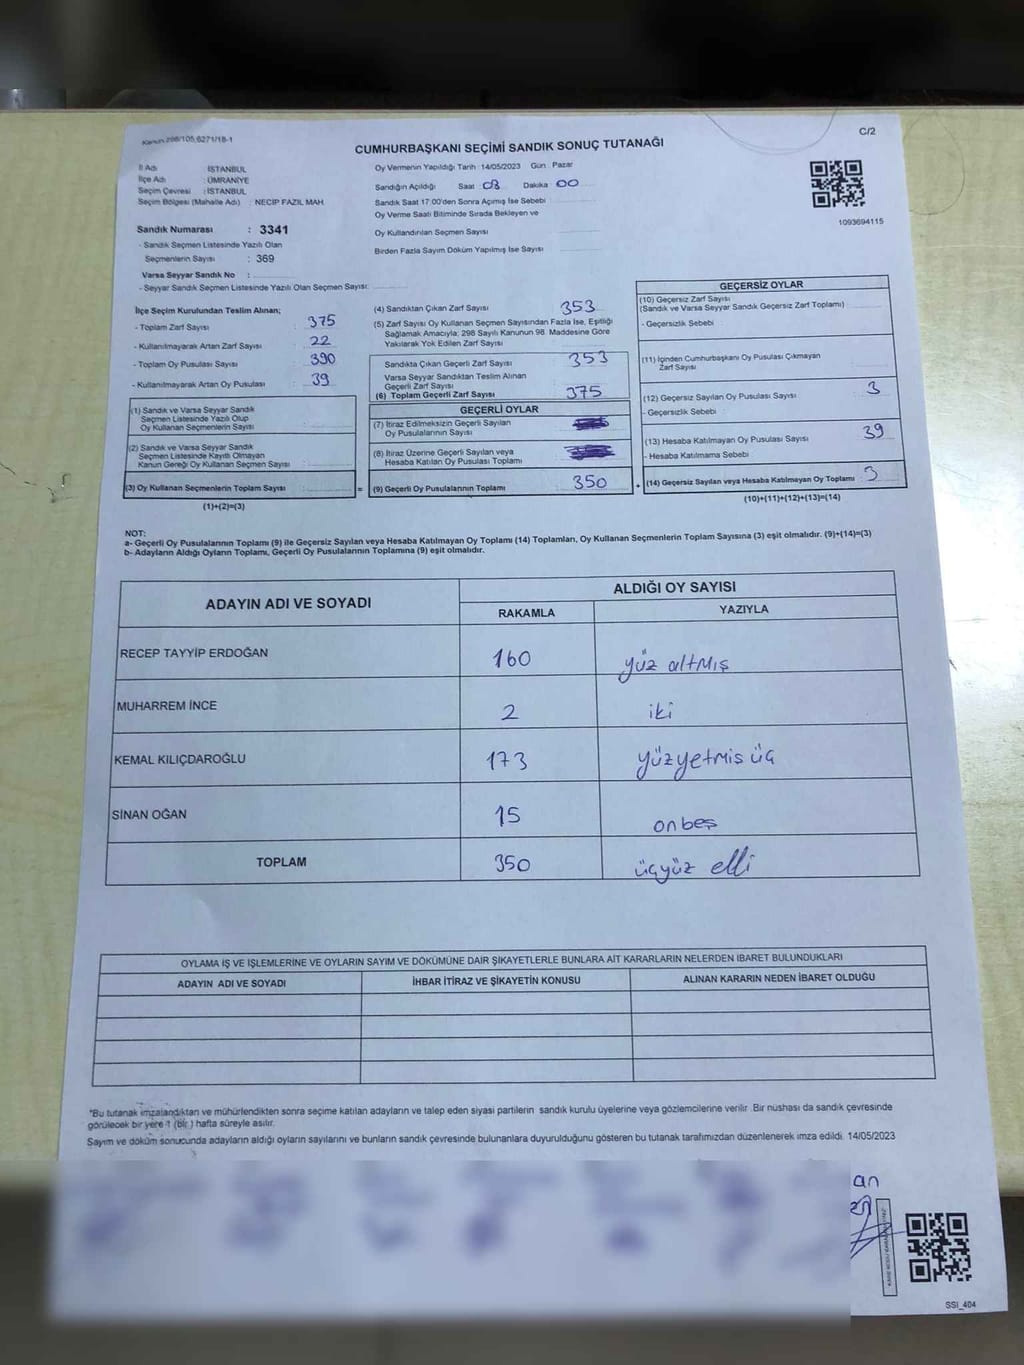 Kanun 298/105,6271/18-1
C/2
CUMHURBAŞKANI SEÇİMİ SANDIK SONUÇ TUTANAĞI
İl Adı : İSTANBUL
İlçe Adı : ÜMRANİYE
Seçim Çevresi : İSTANBUL
Seçim Bölgesi (Mahalle Adı) : NECİP FAZIL MAH.
Sandık Numarası : 3341
- Sandık Seçmen Listesinde Yazılı Olan
Seçmenlerin Sayısı : 369
Varsa Seyyar Sandık No :
- Seyyar Sandık Seçmen Listesinde Yazılı Olan Seçmen Sayısı:
Oy Vermenin Yapıldığı Tarih : 14/05/2023 Gün : Pazar
Sandığın Açıldığı Saat 08 Dakika 00
Sandık Saat 17:00'den Sonra Açılmış İse Sebebi
Oy Verme Saati Bitiminde Sırada Bekleyen ve
Oy Kullandırılan Seçmen Sayısı
Birden Fazla Sayım Döküm Yapılmış İse Sayısı
1093694115
İlçe Seçim Kurulundan Teslim Alınan;
- Toplam Zarf Sayısı : 375
- Kullanılmayarak Artan Zarf Sayısı : 22
- Toplam Oy Pusulası Sayısı : 390
- Kullanılmayarak Artan Oy Pusulası : 39
(1) Sandık ve Varsa Seyyar Sandık
Seçmen Listesinde Yazılı Olup
Oy Kullanan Seçmenlerin Sayısı :
(2) Sandık ve Varsa Seyyar Sandık
Seçmen Listesinde Kayıtlı Olmayan
Kanun Gereği Oy Kullanan Seçmen Sayısı :
(3) Oy Kullanan Seçmenlerin Toplam Sayısı : =
(1)+(2)=(3)
(4) Sandıktan Çıkan Zarf Sayısı 353
(5) Zarf Sayısı Oy Kullanan Seçmen Sayısından Fazla İse, Eşitliği
Sağlamak Amacıyla; 298 Sayılı Kanunun 98. Maddesine Göre
Yakılarak Yok Edilen Zarf Sayısı
Sandıkta Çıkan Geçerli Zarf Sayısı 353
Varsa Seyyar Sandıktan Teslim Alınan
Geçerli Zarf Sayısı
(6) Toplam Geçerli Zarf Sayısı 375
GEÇERLİ OYLAR
(7) İtiraz Edilmeksizin Geçerli Sayılan
Oy Pusulalarının Sayısı
(8) İtiraz Üzerine Geçerli Sayılan veya
Hesaba Katılan Oy Pusulası Toplamı
(9) Geçerli Oy Pusulalarının Toplamı 350 +
GEÇERSİZ OYLAR
(10) Geçersiz Zarf Sayısı
(Sandık ve Varsa Seyyar Sandık Geçersiz Zarf Toplamı)
- Geçersizlik Sebebi
(11) İçinden Cumhurbaşkanı Oy Pusulası Çıkmayan
Zarf Sayısı
(12) Geçersiz Sayılan Oy Pusulası Sayısı 3
- Geçersizlik Sebebi
(13) Hesaba Katılmayan Oy Pusulası Sayısı 39
- Hesaba Katılmama Sebebi
(14) Geçersiz Sayılan veya Hesaba Katılmayan Oy Toplamı 3
(10)+(11)+(12)+(13)=(14)
NOT:
a- Geçerli Oy Pusulalarının Toplamı (9) ile Geçersiz Sayılan veya Hesaba Katılmayan Oy Toplamı (14) Toplamları, Oy Kullanan Seçmenlerin Toplam Sayısına (3) eşit olmalıdır. (9)+(14)=(3)
b- Adayların Aldığı Oyların Toplamı, Geçerli Oy Pusulalarının Toplamına (9) eşit olmalıdır.
ADAYIN ADI VE SOYADI ALDIĞI OY SAYISI
RAKAMLA YAZIYLA
RECEP TAYYİP ERDOĞAN 160 yüz altmış
MUHARREM İNCE 2 iki
KEMAL KILIÇDAROĞLU 173 yüzyetmis üç
SİNAN OĞAN 15 onbeş
TOPLAM 350 üçyüz elli
OYLAMA İŞ VE İŞLEMLERİNE VE OYLARIN SAYIM VE DÖKÜMÜNE DAİR ŞİKAYETLERLE BUNLARA AİT KARARLARIN NELERDEN İBARET BULUNDUKLARI
ADAYIN ADI VE SOYADI İHBAR İTİRAZ VE ŞİKAYETİN KONUSU ALINAN KARARIN NEDEN İBARET OLDUĞU
*Bu tutanak imzalandıktan ve mühürlendikten sonra seçime katılan adayların ve talep eden siyasi partilerin sandık kurulu üyelerine veya gözlemcilerine verilir. Bir nushası da sandık çevresinde
görülecek bir yere 1 (bir ) hafta süreyle asılır.
Sayım ve döküm sonucunda adayların aldığı oyların sayılarını ve bunların sandık çevresinde bulunanlara duyurulduğunu gösteren bu tutanak tarafımızdan düzenlenerek imza edildi. 14/05/2023
an
SSI_404